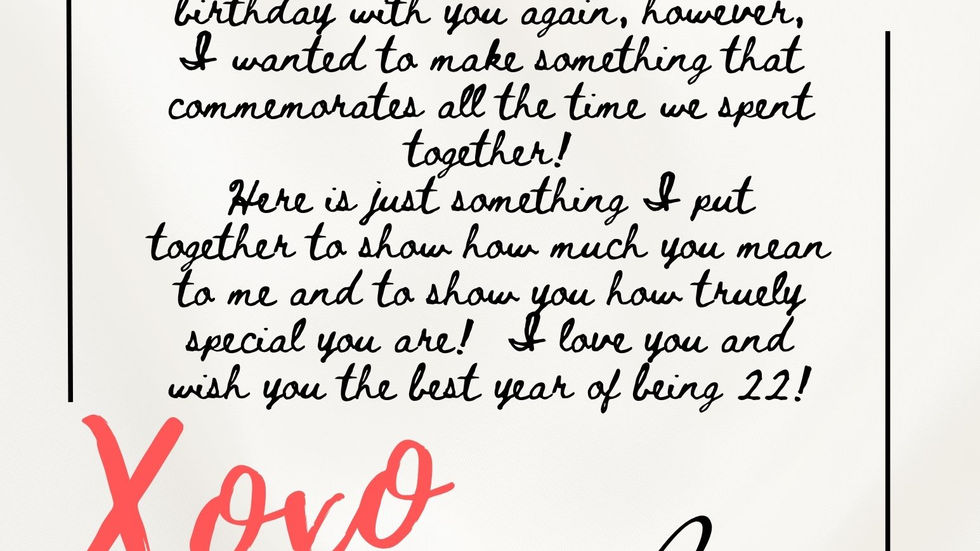 birthday with you again, however,
I wanted to make something that
commemorates all the time we spent
together!
Here is just something I put
together to show how much you mean
to me and to show you how truely
special you are! I love you and
wish you the best year of being 22!
Xoxo